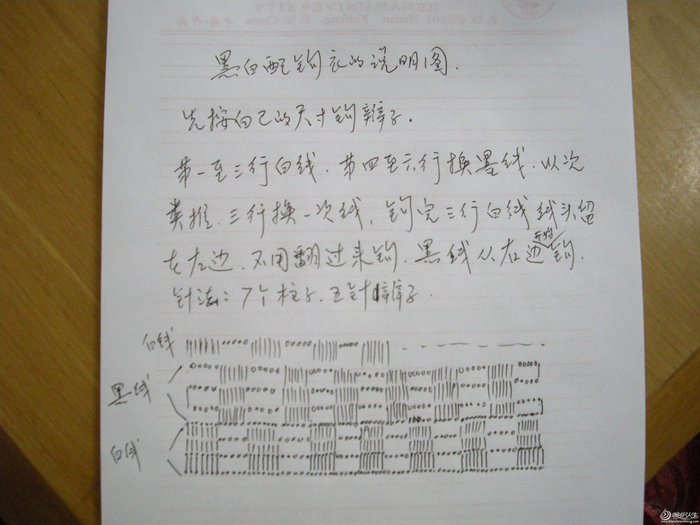 HENAN UNIVERSITY
黑白配钩衣的说明图.
先按自己的尺寸钩辫子.
第一至三行白线.第四至六行换黑线.以次
类推.三行换一次线,钩完三行白线线头留
在左边.不用翻过来钩.黑线从右边开始钩.
针法:7个柱子.五针辫子.
白线
黑线
白线